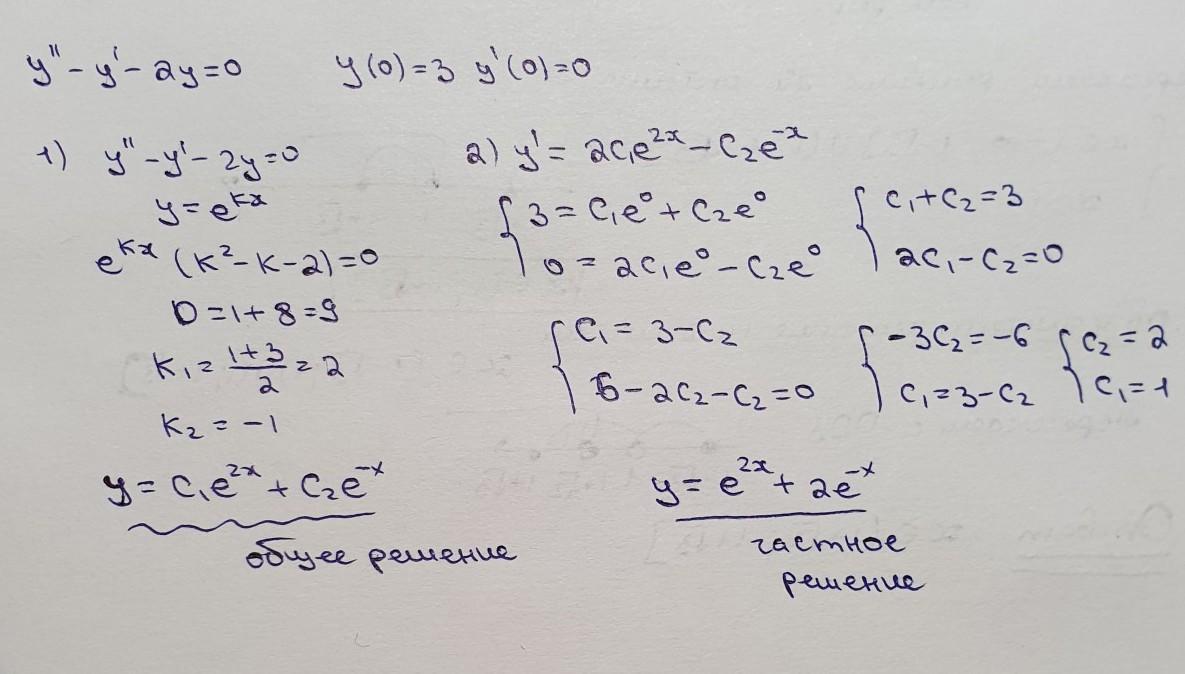 y'' - y' - 2y = 0 y(0) = 3 y'(0) = 0
1) y'' - y' - 2y = 0
y = e^{kx}
e^{kx} (k² - k - 2) = 0
D = 1 + 8 = 9
k₁ = \frac{1+3}{2} = 2
k₂ = -1
y = c₁e^{2x} + c₂e^{-x}
общее решение
2) y' = 2c₁e^{2x} - c₂e^{-x}
{ 3 = c₁e⁰ + c₂e⁰ { c₁ + c₂ = 3
0 = 2c₁e⁰ - c₂e⁰ 2c₁ - c₂ = 0
{ c₁ = 3 - c₂ { -3c₂ = -6 { c₂ = 2
6 - 2c₂ - c₂ = 0 c₁ = 3 - c₂ c₁ = 1
y = e^{2x} + 2e^{-x}
частное
решение